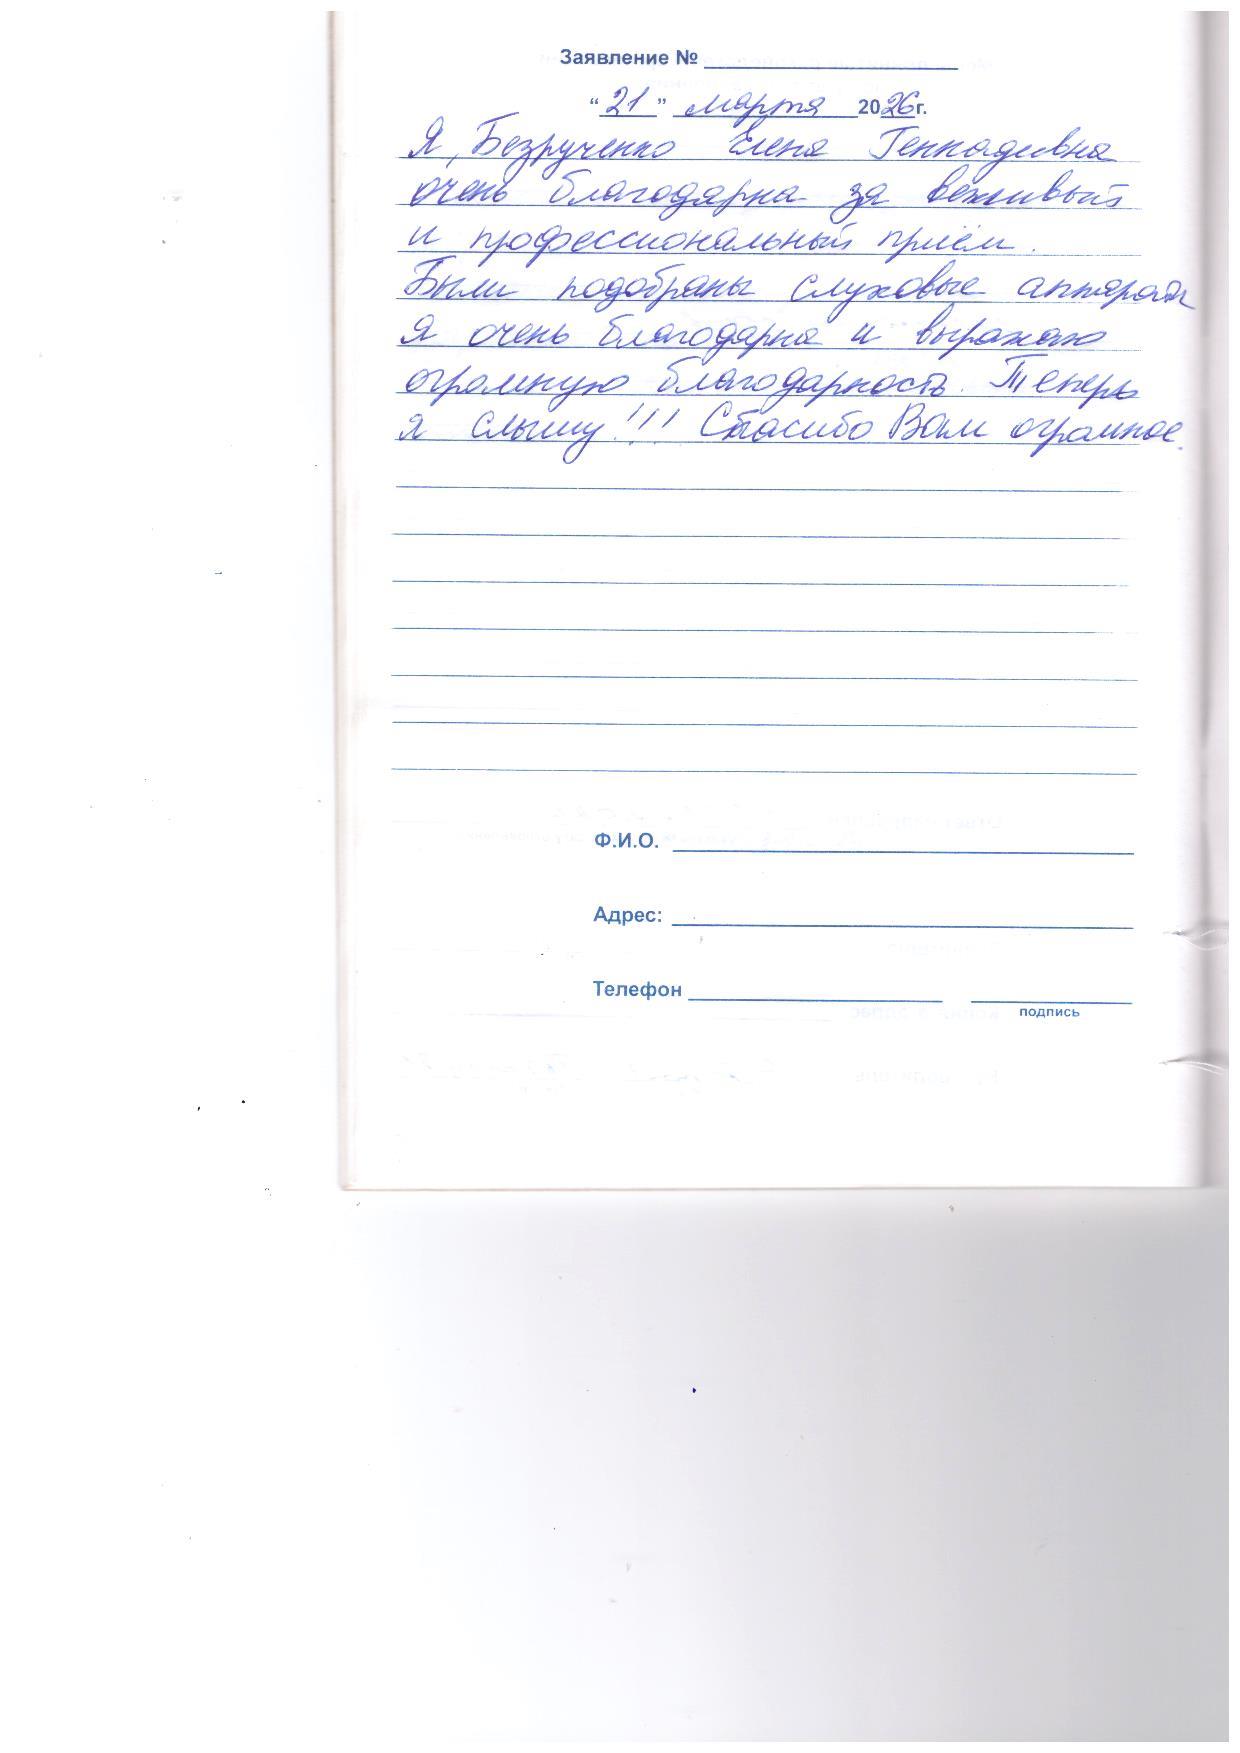 Заявление №
“21” марта 2026г.
Я, Безрученко Елена Геннадьевна
очень благодарна за вежливый
и профессиональный приём.
Были подобраны слуховые аппараты
Я очень благодарна и выражаю
огромную благодарность. Теперь
я слышу!!! Спасибо Вам огромное.
Ф.И.О.
Адрес:
Телефон
подпись